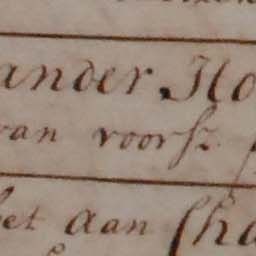 ander Ho
van voorsz
het aan Cha